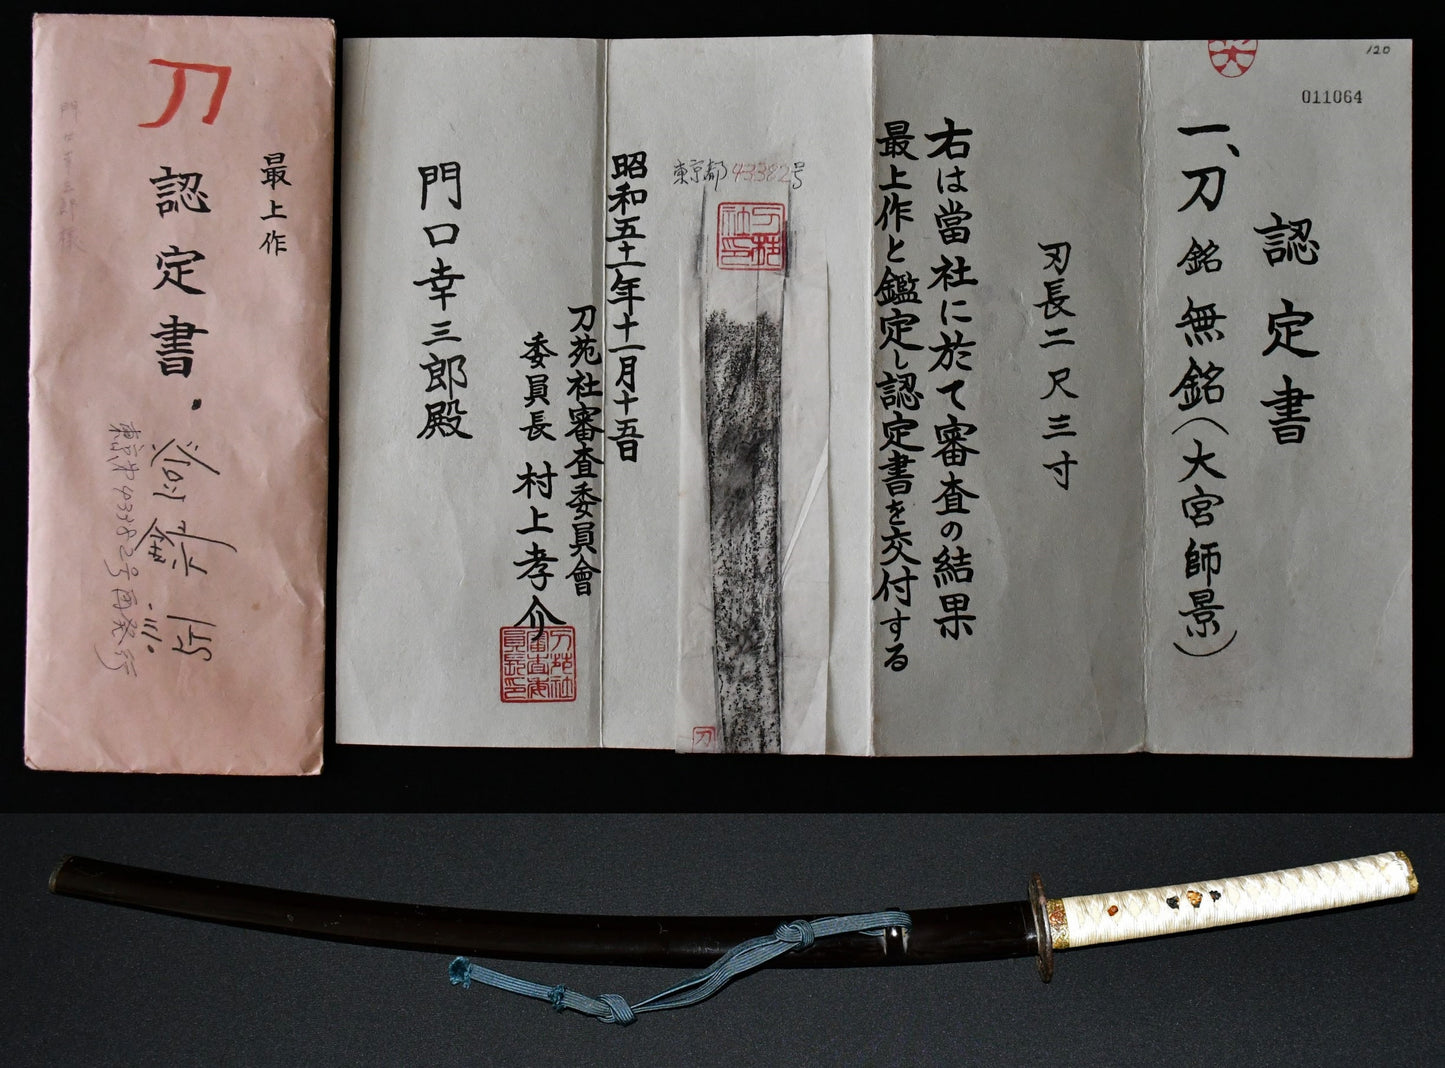 120
011064
認定書
一、刀 銘 無銘（大宮師景）
刃長二尺三寸
右は當社に於て審査の結果
最上作と鑑定し認定書を交付する
東京都43382号
刀苑社印
刀
昭和五十一年十一月十五日
刀苑社審査委員會
委員長 村上孝介
刀苑社審査委員長印
門口幸三郎殿
最上作
刀
認定書.
43382号再発行
門口幸三郎様